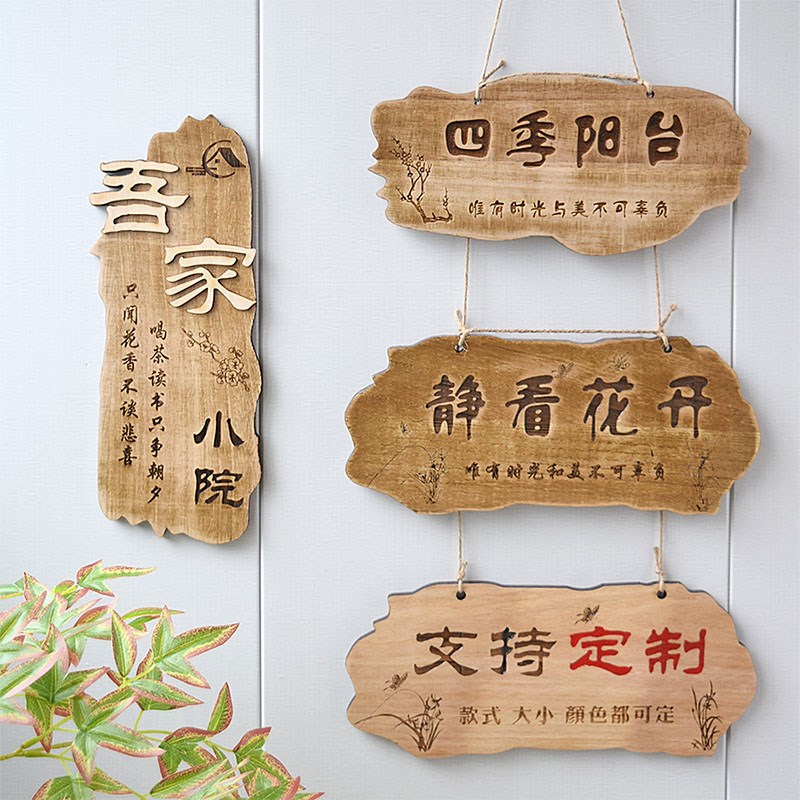 吾家
小院
喝茶读书只争朝夕
只闻花香不谈悲喜
四季阳台
唯有时光与美不可辜负
静看花开
唯有时光和美不可辜负
支持定制
款式 大小 顏色都可定